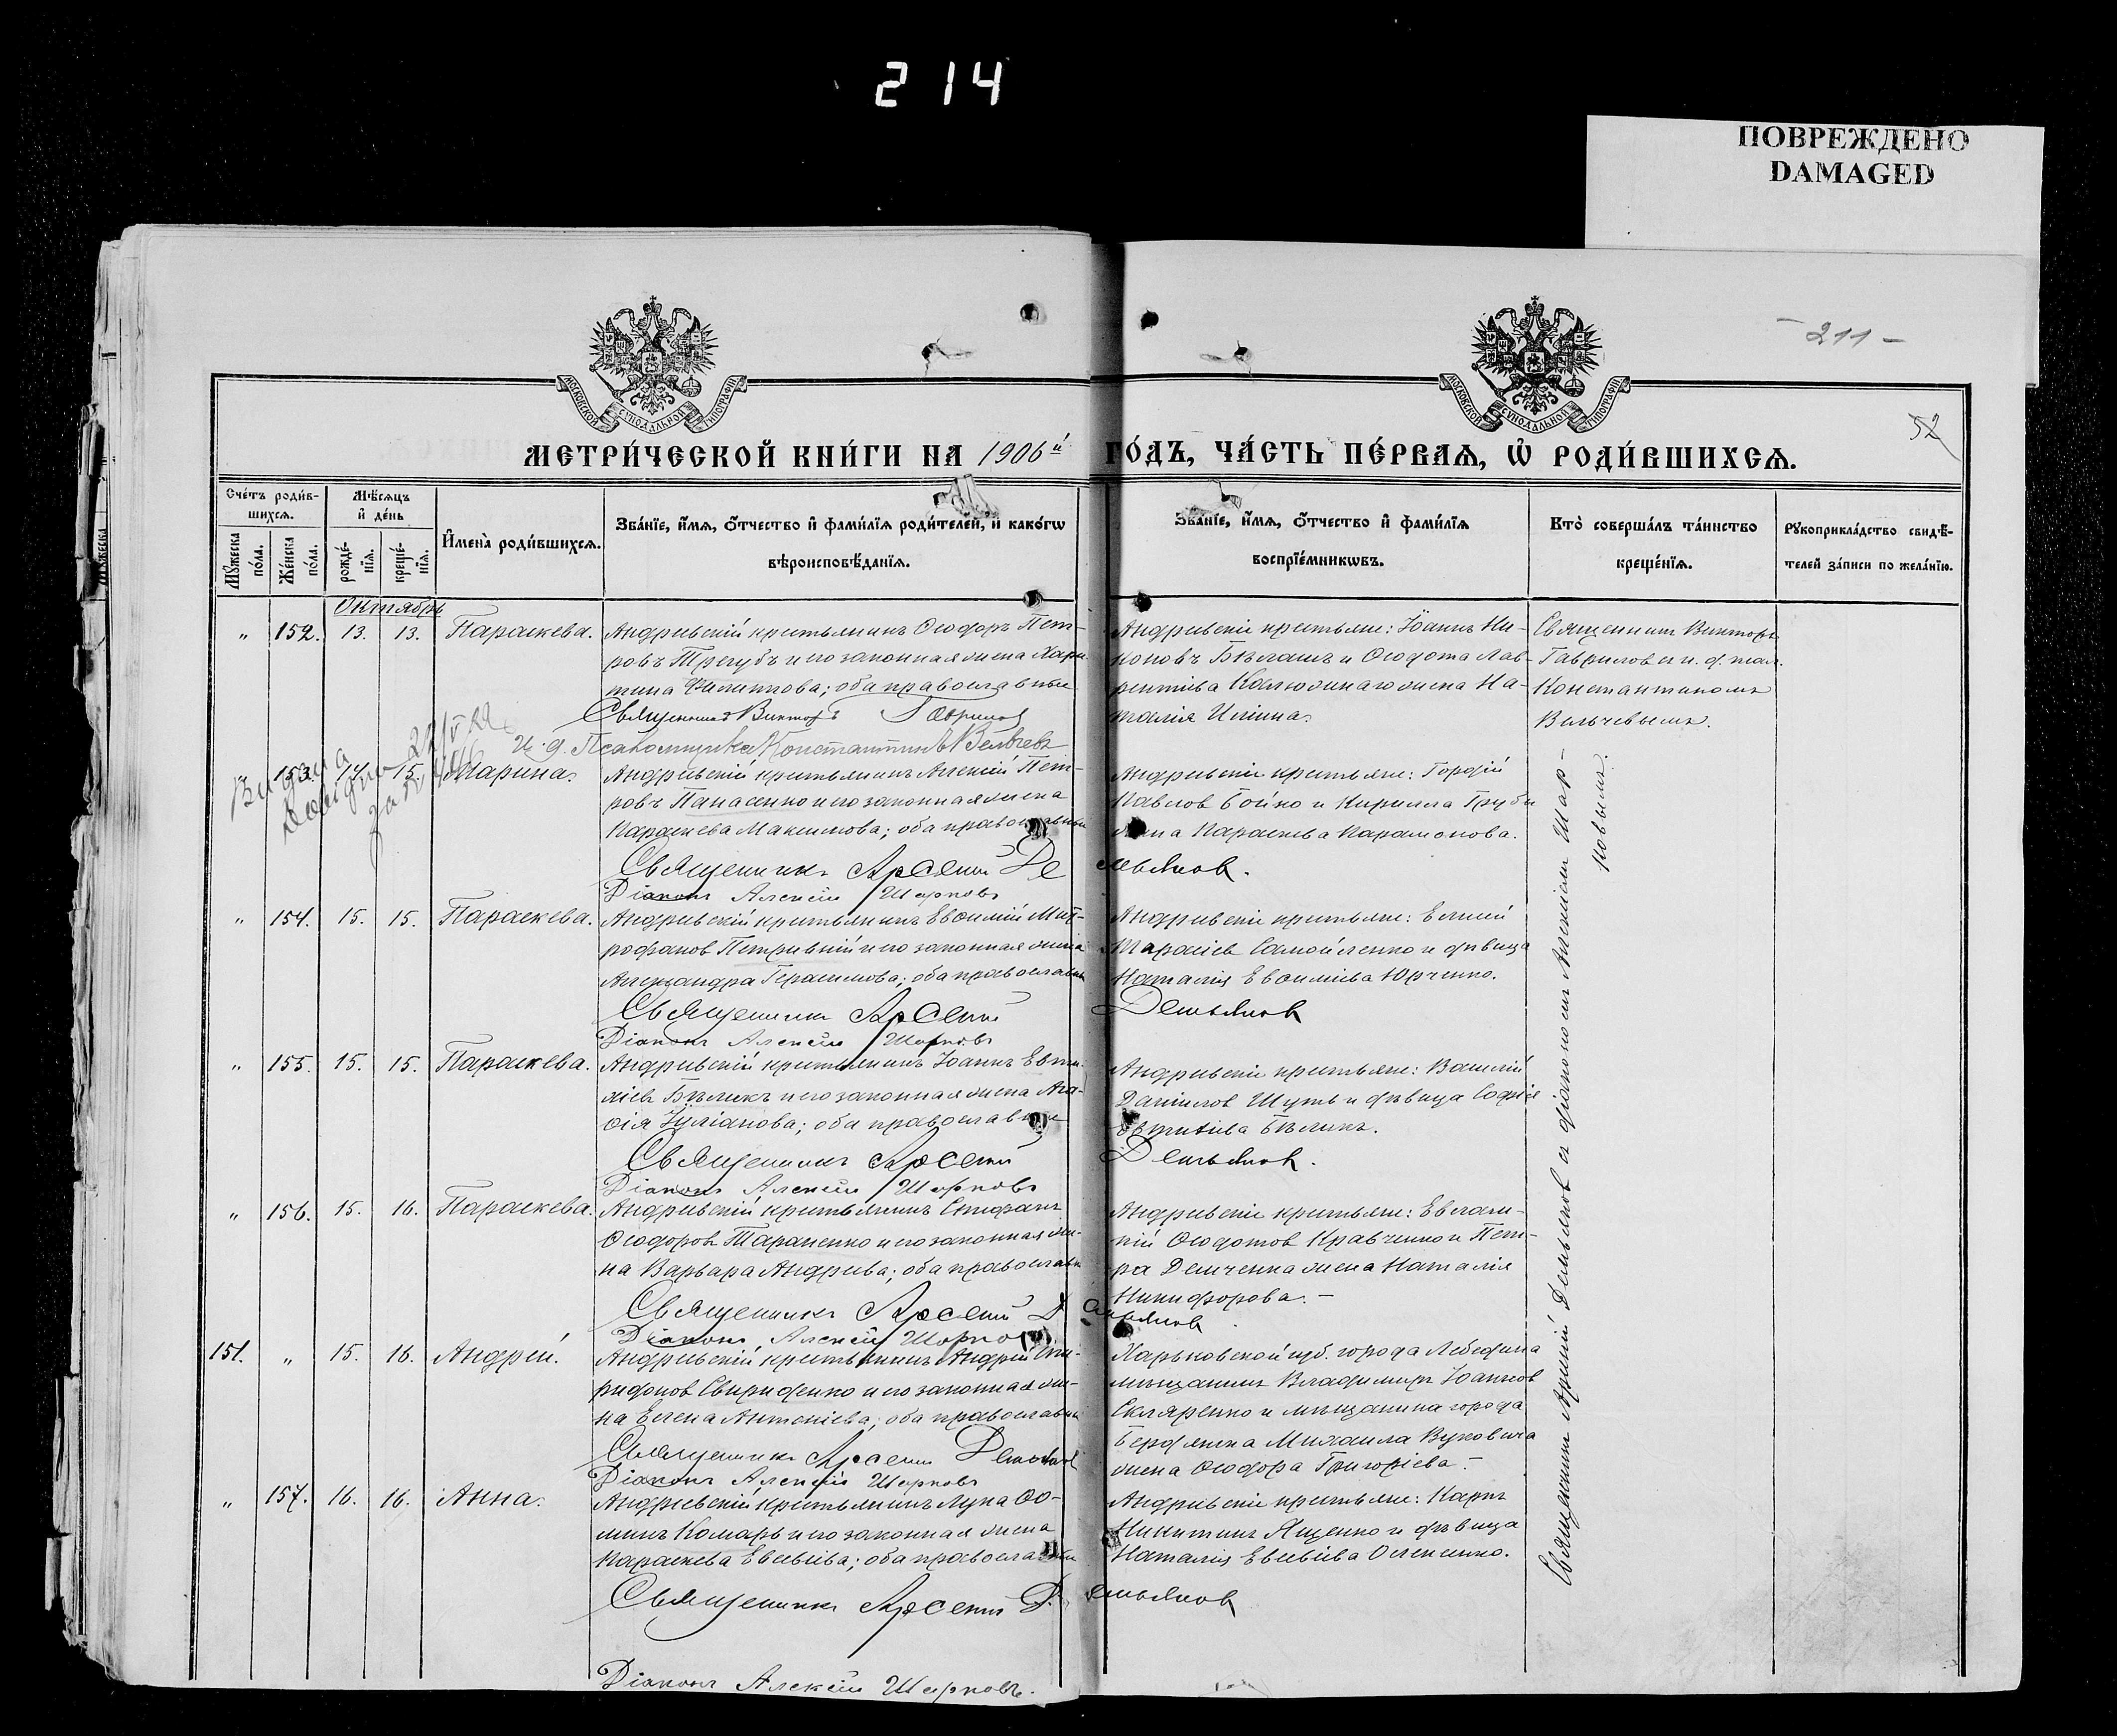 214
ПОВРЕЖДЕНО
DAMAGED
- 211 -
52
МОСКОВСКОЙ СѴНОДАЛЬНОЙ ТИПОГРАФІИ
МОСКОВСКОЙ СѴНОДАЛЬНОЙ ТИПОГРАФІИ
МЕТРИ́ЧЕСКОЙ КНИ́ГИ НА 1906й ГО́ДЪ, ЧА́СТЬ ПЕ́РВАЯ, Ѡ РОДИ́ВШИХСЯ.
Сче́тъ роди́в-
шихся.
Мѣ́сяцъ
и де́нь
Му́жеска по́ла.
Же́нска по́ла.
рожде́-нїя.
креще́-нїя.
И҆мена̀ роди́вшихся.
Зва́нїе, и҆́мя, ѻ҆́тчество и҆ фами́лїя роди́телей, и҆ како́гѡ
вѣроисповѣ́данїя.
Зва́нїе, и҆́мя, ѻ҆́тчество и҆ фами́лїя
воспрїе́мникѡвъ.
Кто̀ соверша́лъ та́инство
креще́нїя.
Рꙋкоприкла́дство свидѣ́-
телей за́писи по жела́нїю.
Октябрь
" 152. 13. 13. Параскева.
Андреевскій крестьянинъ Ѳеодоръ Пет-
ровъ Трегубъ и его законная жена Хари-
тина Филиппова; оба православные
Священникъ Викторъ Гаврилов
И. д. Псаломщика Константинъ Вельчевъ
Андреевскіе крестьяне: Іоаннъ Ни-
коновъ Бѣлашъ и Ѳеодота Лав-
рентіева жена На-
талія Ильина.
Священникъ Викторъ
Гаврилов съ и. д. псал.
Константиномъ
Вельчевымъ.
Видана
153. 14. 15. Марина.
Андреевскій крестьянинъ Алексій Пет-
ровъ Панасенко и его законная жена
Параскева Максимова; оба православные
Священникъ Арсеній Демьянов.
Діаконъ Алексій Шарковъ
Андреевскіе крестьяне: Гордій
Павлов Бойко и Кирилла Грубы
жена Параскева Парамонова.
" 154. 15. 15. Параскева.
Андреевскій крестьянинъ Евѳимій Мит-
рофанов Петривній и его законная жена
Александра Герасимова; оба православные
Священникъ Арсеній Демьянов
Діаконъ Алексій Шарковъ
Андреевскіе крестьяне:
Тарасіев Самойленко и дѣвица
Наталія Евѳиміева Юрченко.
" 155. 15. 15. Параскева.
Андреевскій крестьянинъ Іоаннъ Евти-
хіев Бѣликъ и его законная жена Ага-
ѳія Іуліанова; оба православные
Священникъ Арсеній Демьянов.
Діаконъ Алексій Шарковъ
Андреевскіе крестьяне: Василій
Даніилов Шуть и дѣвица Софія
Евтихіева Бѣликъ.
" 156. 15. 16. Параскева.
Андреевскій крестьянинъ Стефанъ
Ѳеодоров Тараненко и его законная же-
на Варвара Андреева; оба православн
Священникъ Арсеній Демьянов
Діаконъ Алексій Шарков
Андреевскіе крестьяне: Евлам-
пій Ѳеодотов Кравченко и Пет-
ра Демченка жена Наталія
Никифорова. -
151. " 15. 16. Андрей.
Андреевскій крестьянинъ Андрей Спи-
ридонов Свириденко и его законная же-
на Елена Антоніева; оба православны
Священникъ Арсеній Демьянов
Діаконъ Алексій Шарковъ
Харьковской губ. города Лебедина
мѣщанинъ Владимиръ Іоаннов
Скляренко и мѣщанина города
Бердянска Михаила Вуковича
жена Ѳеодора Григоріева. -
" 157. 16. 16. Анна.
Андреевскій крестьянинъ Лука Ѳо-
минъ Комаръ и его законная жена
Параскева Евсевіева; оба православные
Священникъ Арсеній Демьянов
Діаконъ Алексій Шарковъ.
Андреевскіе крестьяне: Карпъ
Никитинъ Ященко и дѣвица
Наталія Евсевіева Олексенко.
Священникъ Арсеній Демьянов съ діакономъ Алексіем Шар-
ковымъ.